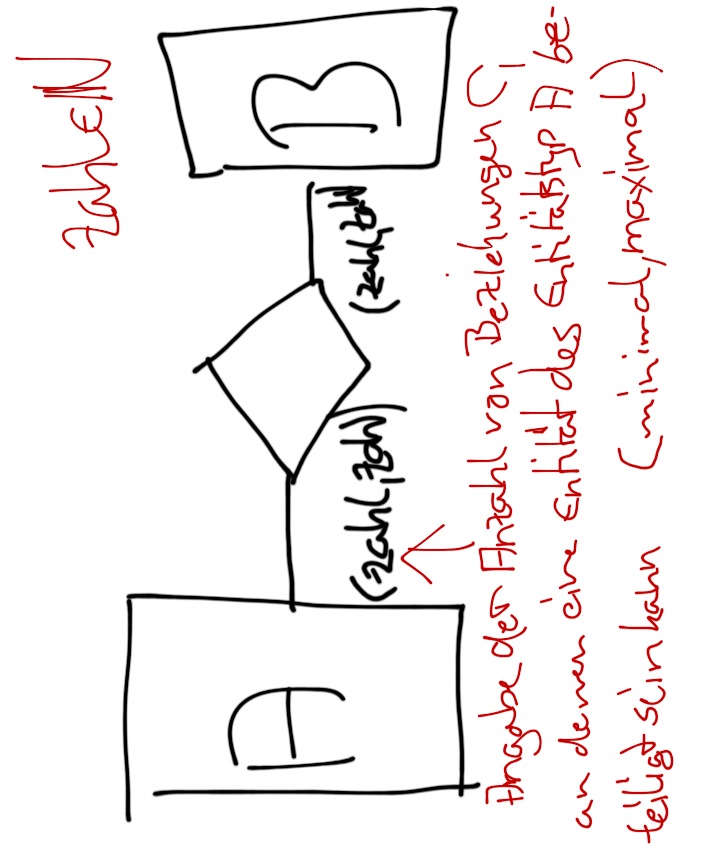 Zahl∈ℕ
A
B
(zahl,zahl)
(zahl,zahl)
Angabe der Anzahl von Beziehungen C,
an denen eine Entität des Entitätstyp A be-
teiligt sein kann (minimal, maximal)